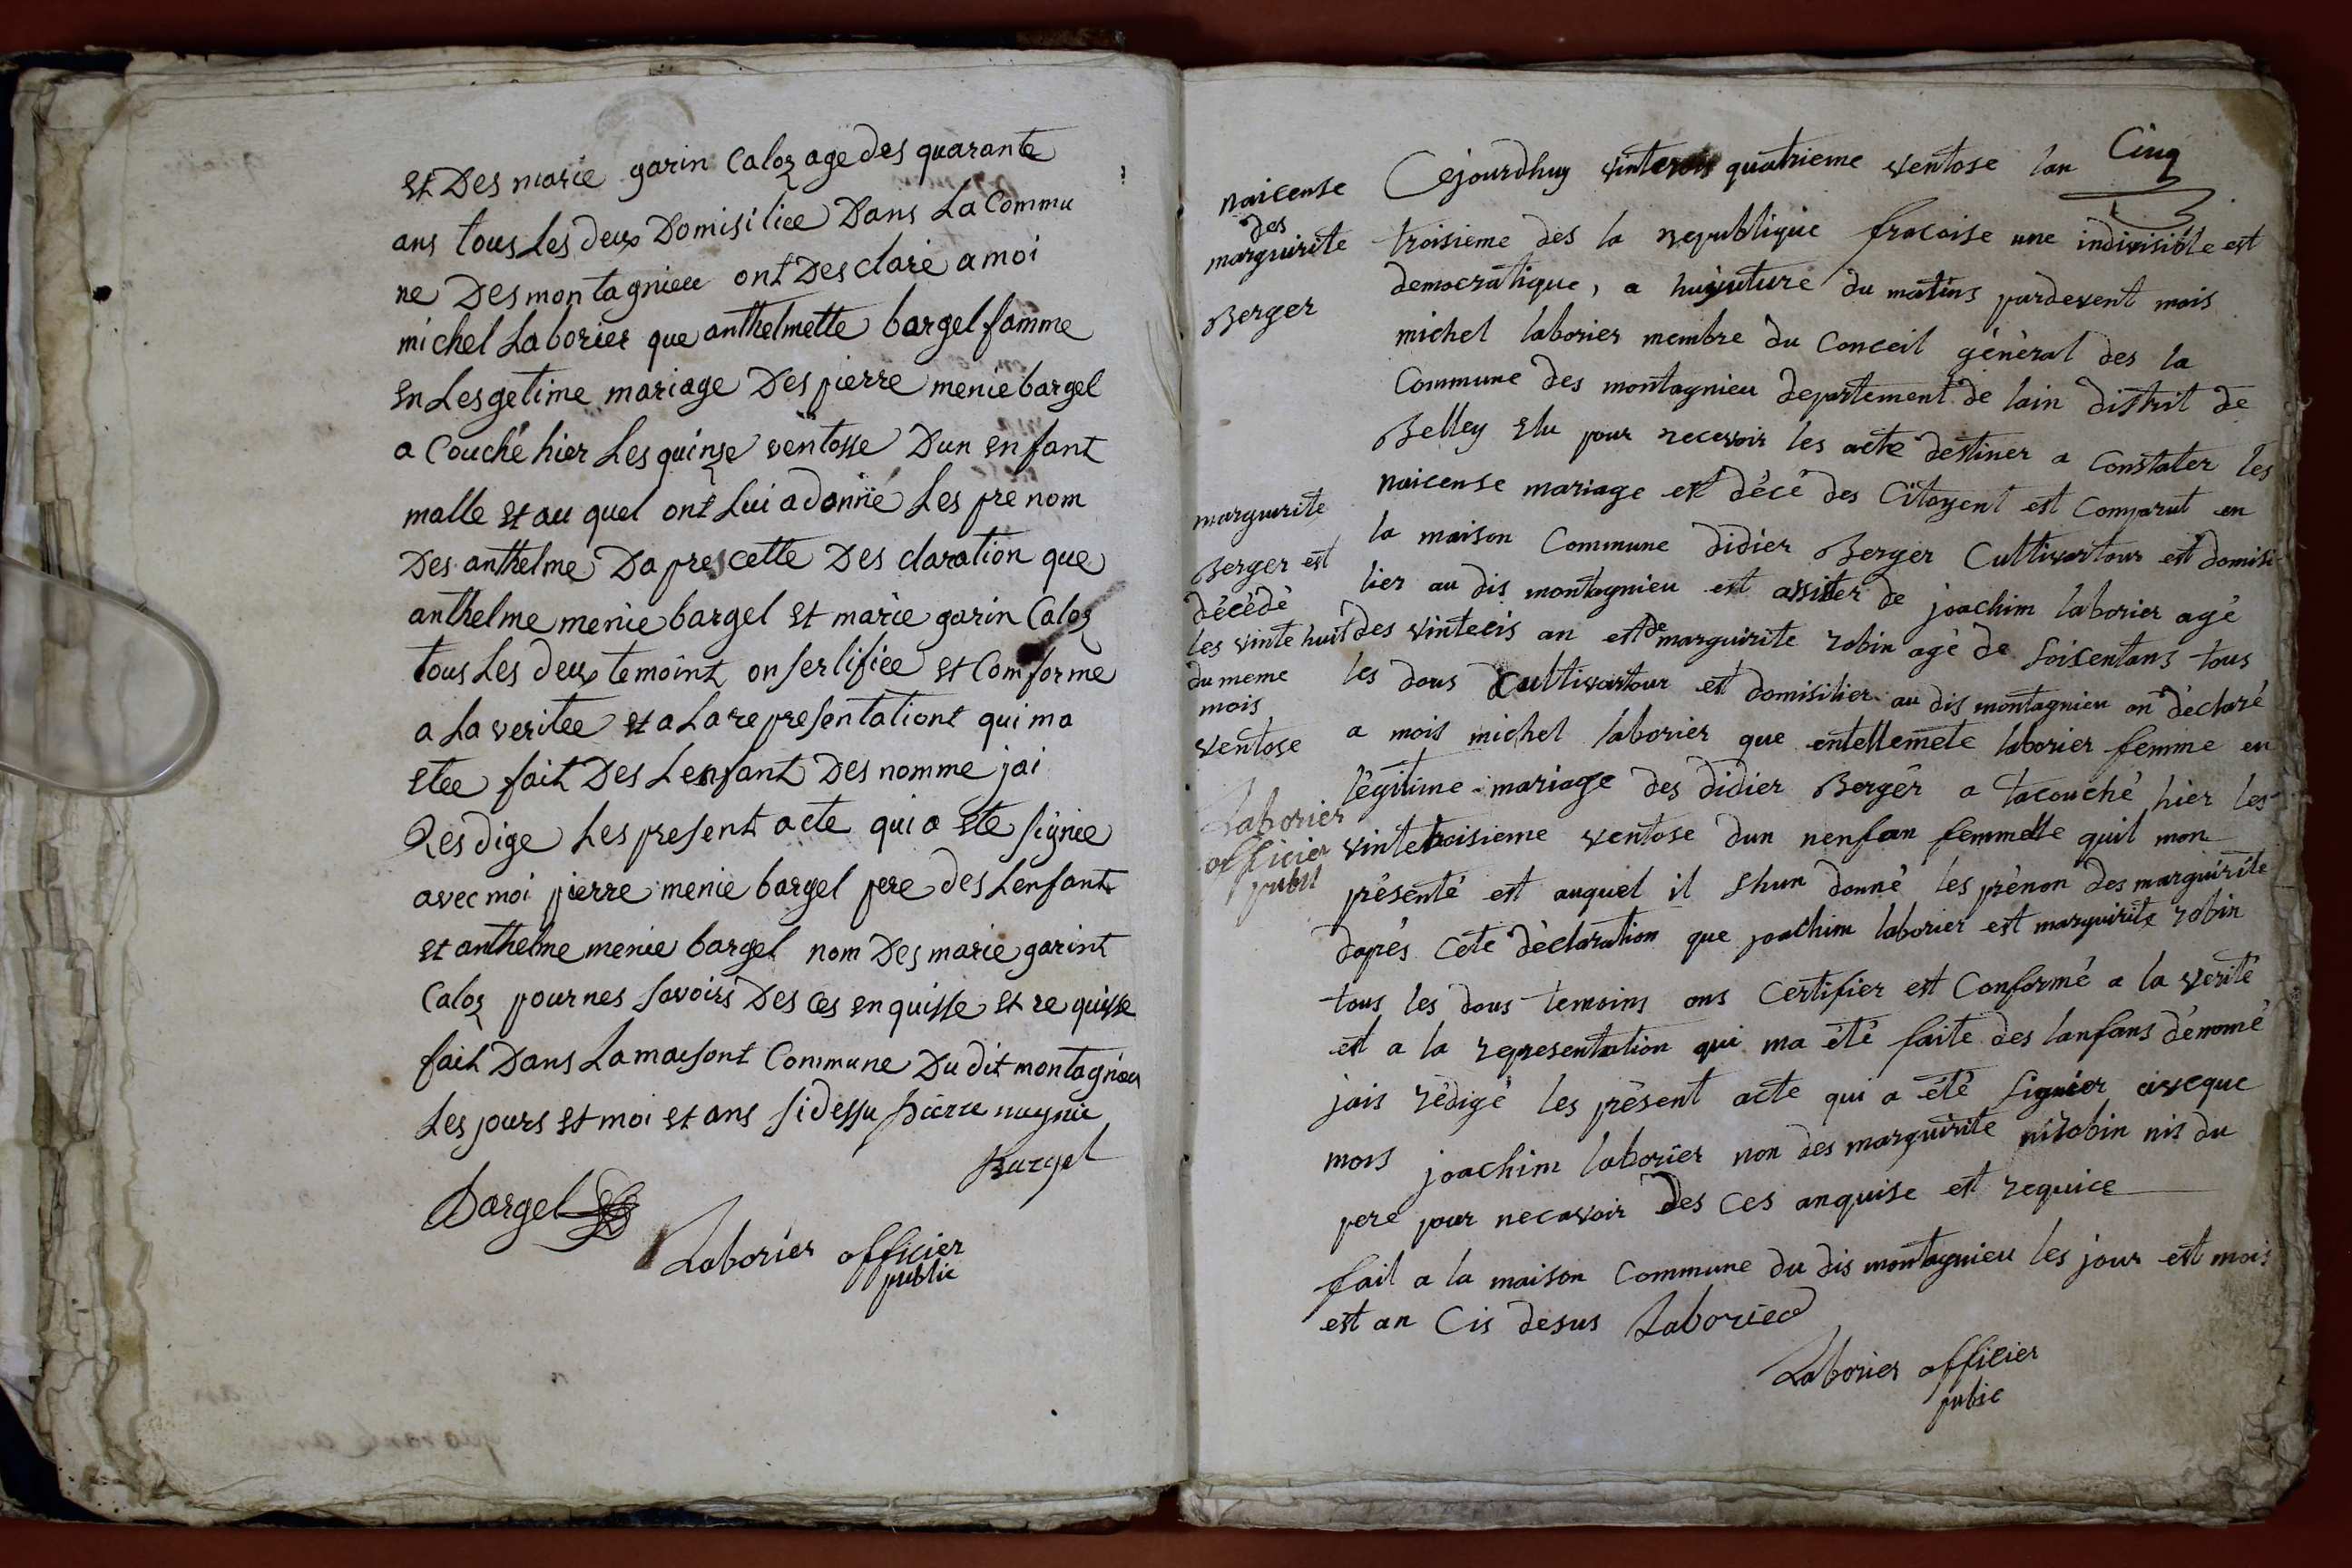 et Des marie garin Caloz age des quarante
ans tous Les deux Domisiliee Dans La Commu
ne Desmontagnieu ont Desclaré a moi
michel Laborier que anthelmette bargel famme
en Lesgetime mariage Des pierre menie bargel
a Couché hier Les quinse ventosse Dun enfant
malle et au quel ont Lui a donné Les pre nom
Des anthelme Da pres cette Des claration que
anthelme menie bargel et marie garin Caloz
tous Les deux temoint on sertifiee et Comforme
a La veritee et a La representationt qui ma
etee fait Des Lenfant Des nomme jai
Resdige Les present acte qui a ete signee
avec moi pierre menie bargel pere des Lenfant
et anthelme menie bargel nom Des marie garint
Caloz pour nes savoirs Des ces enquisse et requisse
fait Dans La maisont Commune Du dit montagnieu
Les jours et moi et ans sidessu pierre
Bargel
Bargel
Laborier officier
public
Cinq
naicense
des
marguirite
Berger
marguirite
Berger est
décédé
les vinte huit
du meme
mois
ventose
Laborier
officier
publi
Cejourdhuy quatrieme ventose lan
troisieme des la republique fracaise une indivisible est
democratique, a du matins pardevent mois
michel laborier membre du Conceil général des la
Commune des montagnieu departement de lain distrit de
Belley elu pour recevoir les acte destiner a Constater les
naicense mariage est décé des Citoyent est Comparut en
la maison Commune didier Berger Cultivartour est domisi
lier au dis montagnieu est assister de joachim laborier agé
des vintecis an est de marguirite robin agé de soixentans tous
les dous Cultivartour est domisilier au dis montagnieu on déclaré
a mois michel laborier que entellemete laborier femme en
légitime mariage des didier Berger a tacouché hier les
vintetroisieme ventose dun nenfan femmelle quil mon
présenté est auquel il Ehun donné les prénon des marguirite
daprés Cete déclaration que joachim laborier est marguirite robin
tous les dous temoins ons Certifier est Conformé a la verité
est a la representation qui ma été faite des lanfans dénomé
jais rédigé les présent acte qui a été signier aveque
mois joachim laborier non des marguirite nirobin nis du
pere pour necavoir des ces anquise est requice
fail a la maison Commune du dis montagnieu les jour est mois
est an Cis desus Laborier
Laborier officier
pubic